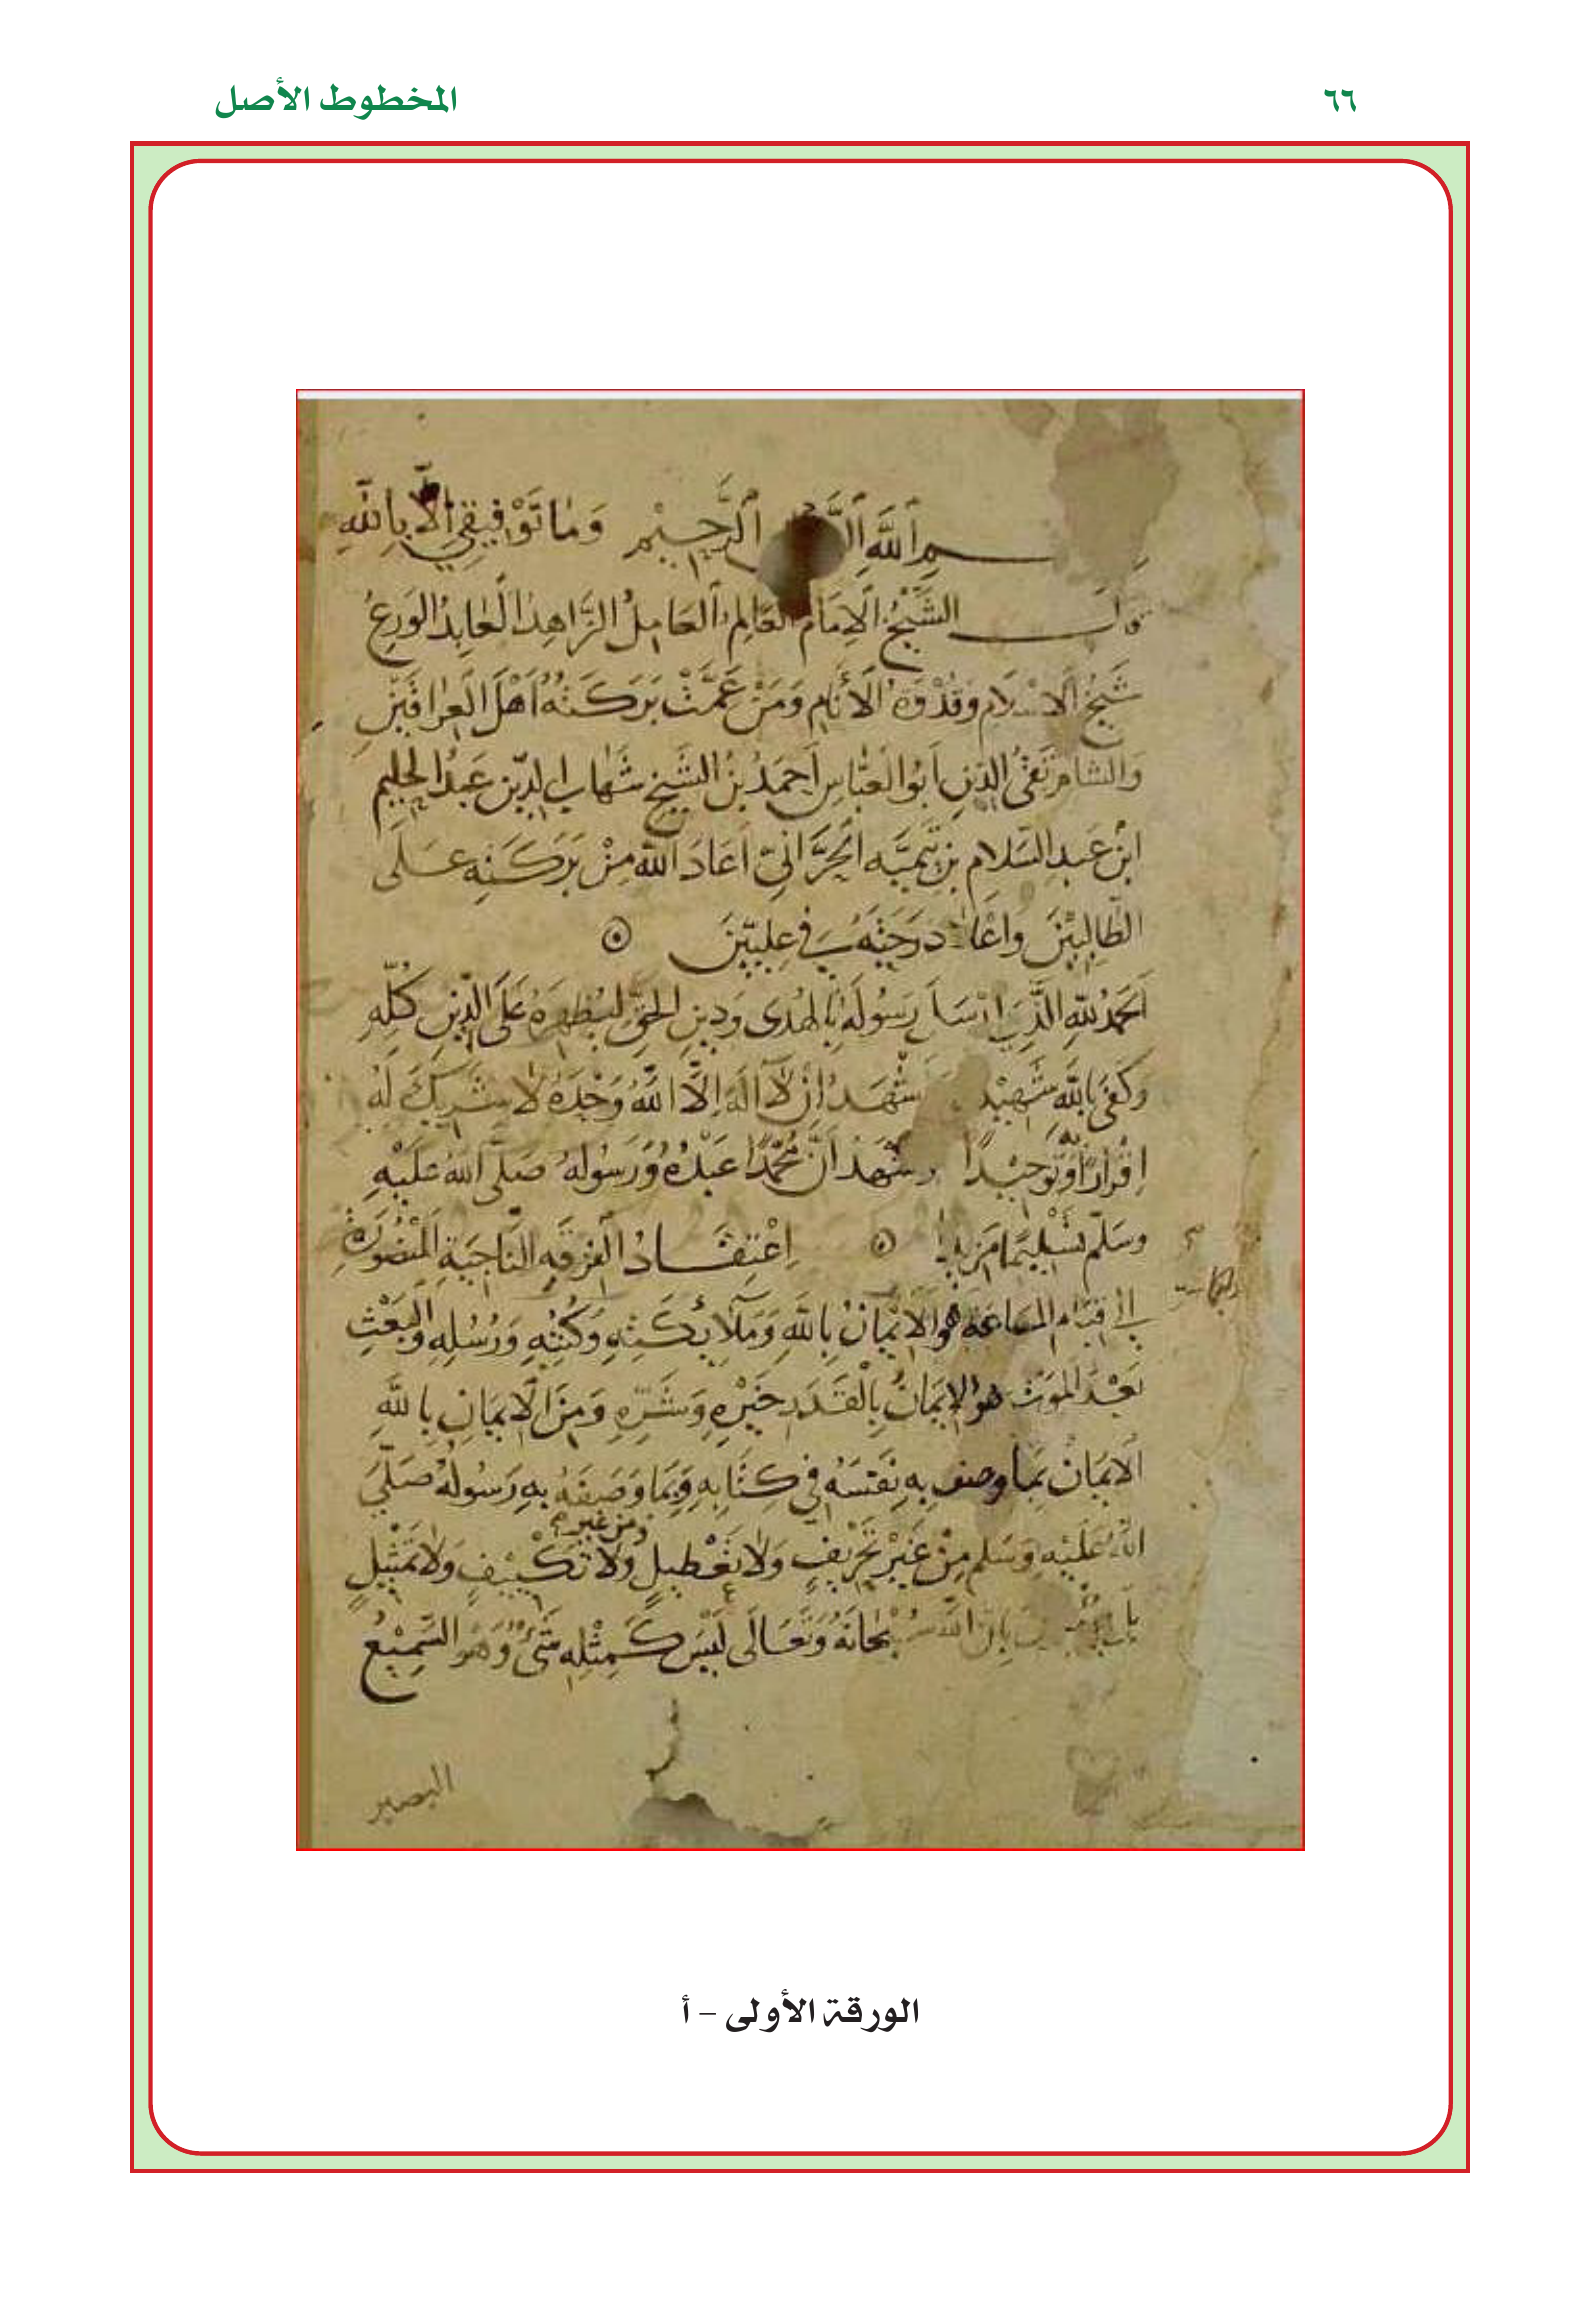 ٦٦
المخطوط الأصل
بسم ٱلله ٱلرحمن ٱلرَّحِيْمِ وَمَا تَوْفِيقِي إلَّا بِاللهِ
قال الشَّيْخُ الْاِمَامُ العَالِمُ العَامِلُ الزَّاهِدُ العَابِدُ الوَرِعُ
شَيْخُ الْاسْلَامِ وَقُدْوَةُ الْأَنَامِ وَمَنْ عَمَّتْ بَرَكَتُهُ اَهْلَ العِرَاقَيْنِ
وَالشام تَقِيُّ الدِّينِ اَبُو العَبَّاسِ اَحمَدُ بنُ الشَّيْخِ شَهَابِ الدِّين عَبْدُ الحَلِيمِ
ابْنُ عَبدِ السَّلامِ بنِ تَيْمِيَّه الحَرَّانِيّ اَعَادَ اللهُ مِنْ بَرَكَتِهِ عَلَى
الطَّالِبِيْنَ وَاعْلَا دَرَجَتَهُ فِي عِلِيّيْنَ
اَلحَمدُ للهِ الَّذِي ارْسَلَ رَسُولَهُ بِالهُدَى وَدِينِ الحَقِّ لِيُظهِرَهُ عَلَى الدِّينِ كُلِّهِ
وَكَفَى بِاللهِ شَهِيْدًا اَشْهَدُ اَنْ لَآ اِلَهَ اِلَّا اللهُ وَحْدَهُ لا شَرِيكَ لَهُ
اِقْرَارًا وَتَوحِيْدًا وَاشْهَدُ اَنَّ مُحَمَّدًا عَبْدُهُ وَرَسُولُهُ صَلَّى اللهُ عَلَيْهِ
وَسَلَّمَ تَسْلِيْمًا مَزِيدًا اِعْتِقَادُ الفِرْقَهِ النَّاجِيَةِ المَنْصُورَةِ
إلى قيَام السَاعَةِ هو الْايْمَانُ بِاللهِ وَمَلَآئِكَتِهِ وَكُتُبِهِ وَرُسُلِهِ وَالْبَعْثِ
بَعْدَ المَوتِ هو الإِيمَانُ بِالْقَدَرِ خَيْرِهِ وَشَرِّهِ وَمِنَ الْايمَانِ بِاللهِ
الايمَانُ بِمَا وصف بِهِ نَفْسَهُ فِي كِتَابِهِ وَبِمَا وَصَفَهُ بِهِ رَسُولُهُ صَلَّى
اللهُ عَلَيْهِ وَسَلم مِنْ غَيْرِ تَحْرِيْفٍ وَلَا تَعْطِيلٍ وَلَا تَكْيِيْفٍ وَلا تَمْثِيْلٍ
ومن غير
بَل يؤمنون بِان اللهَ سُبْحَانَهُ وَتَعَالَى لَيْسَ كَمِثْلِهِ شَىْءٌ وَهُوَ السَّمِيْعُ
البصير
الورقة الأولى – أ